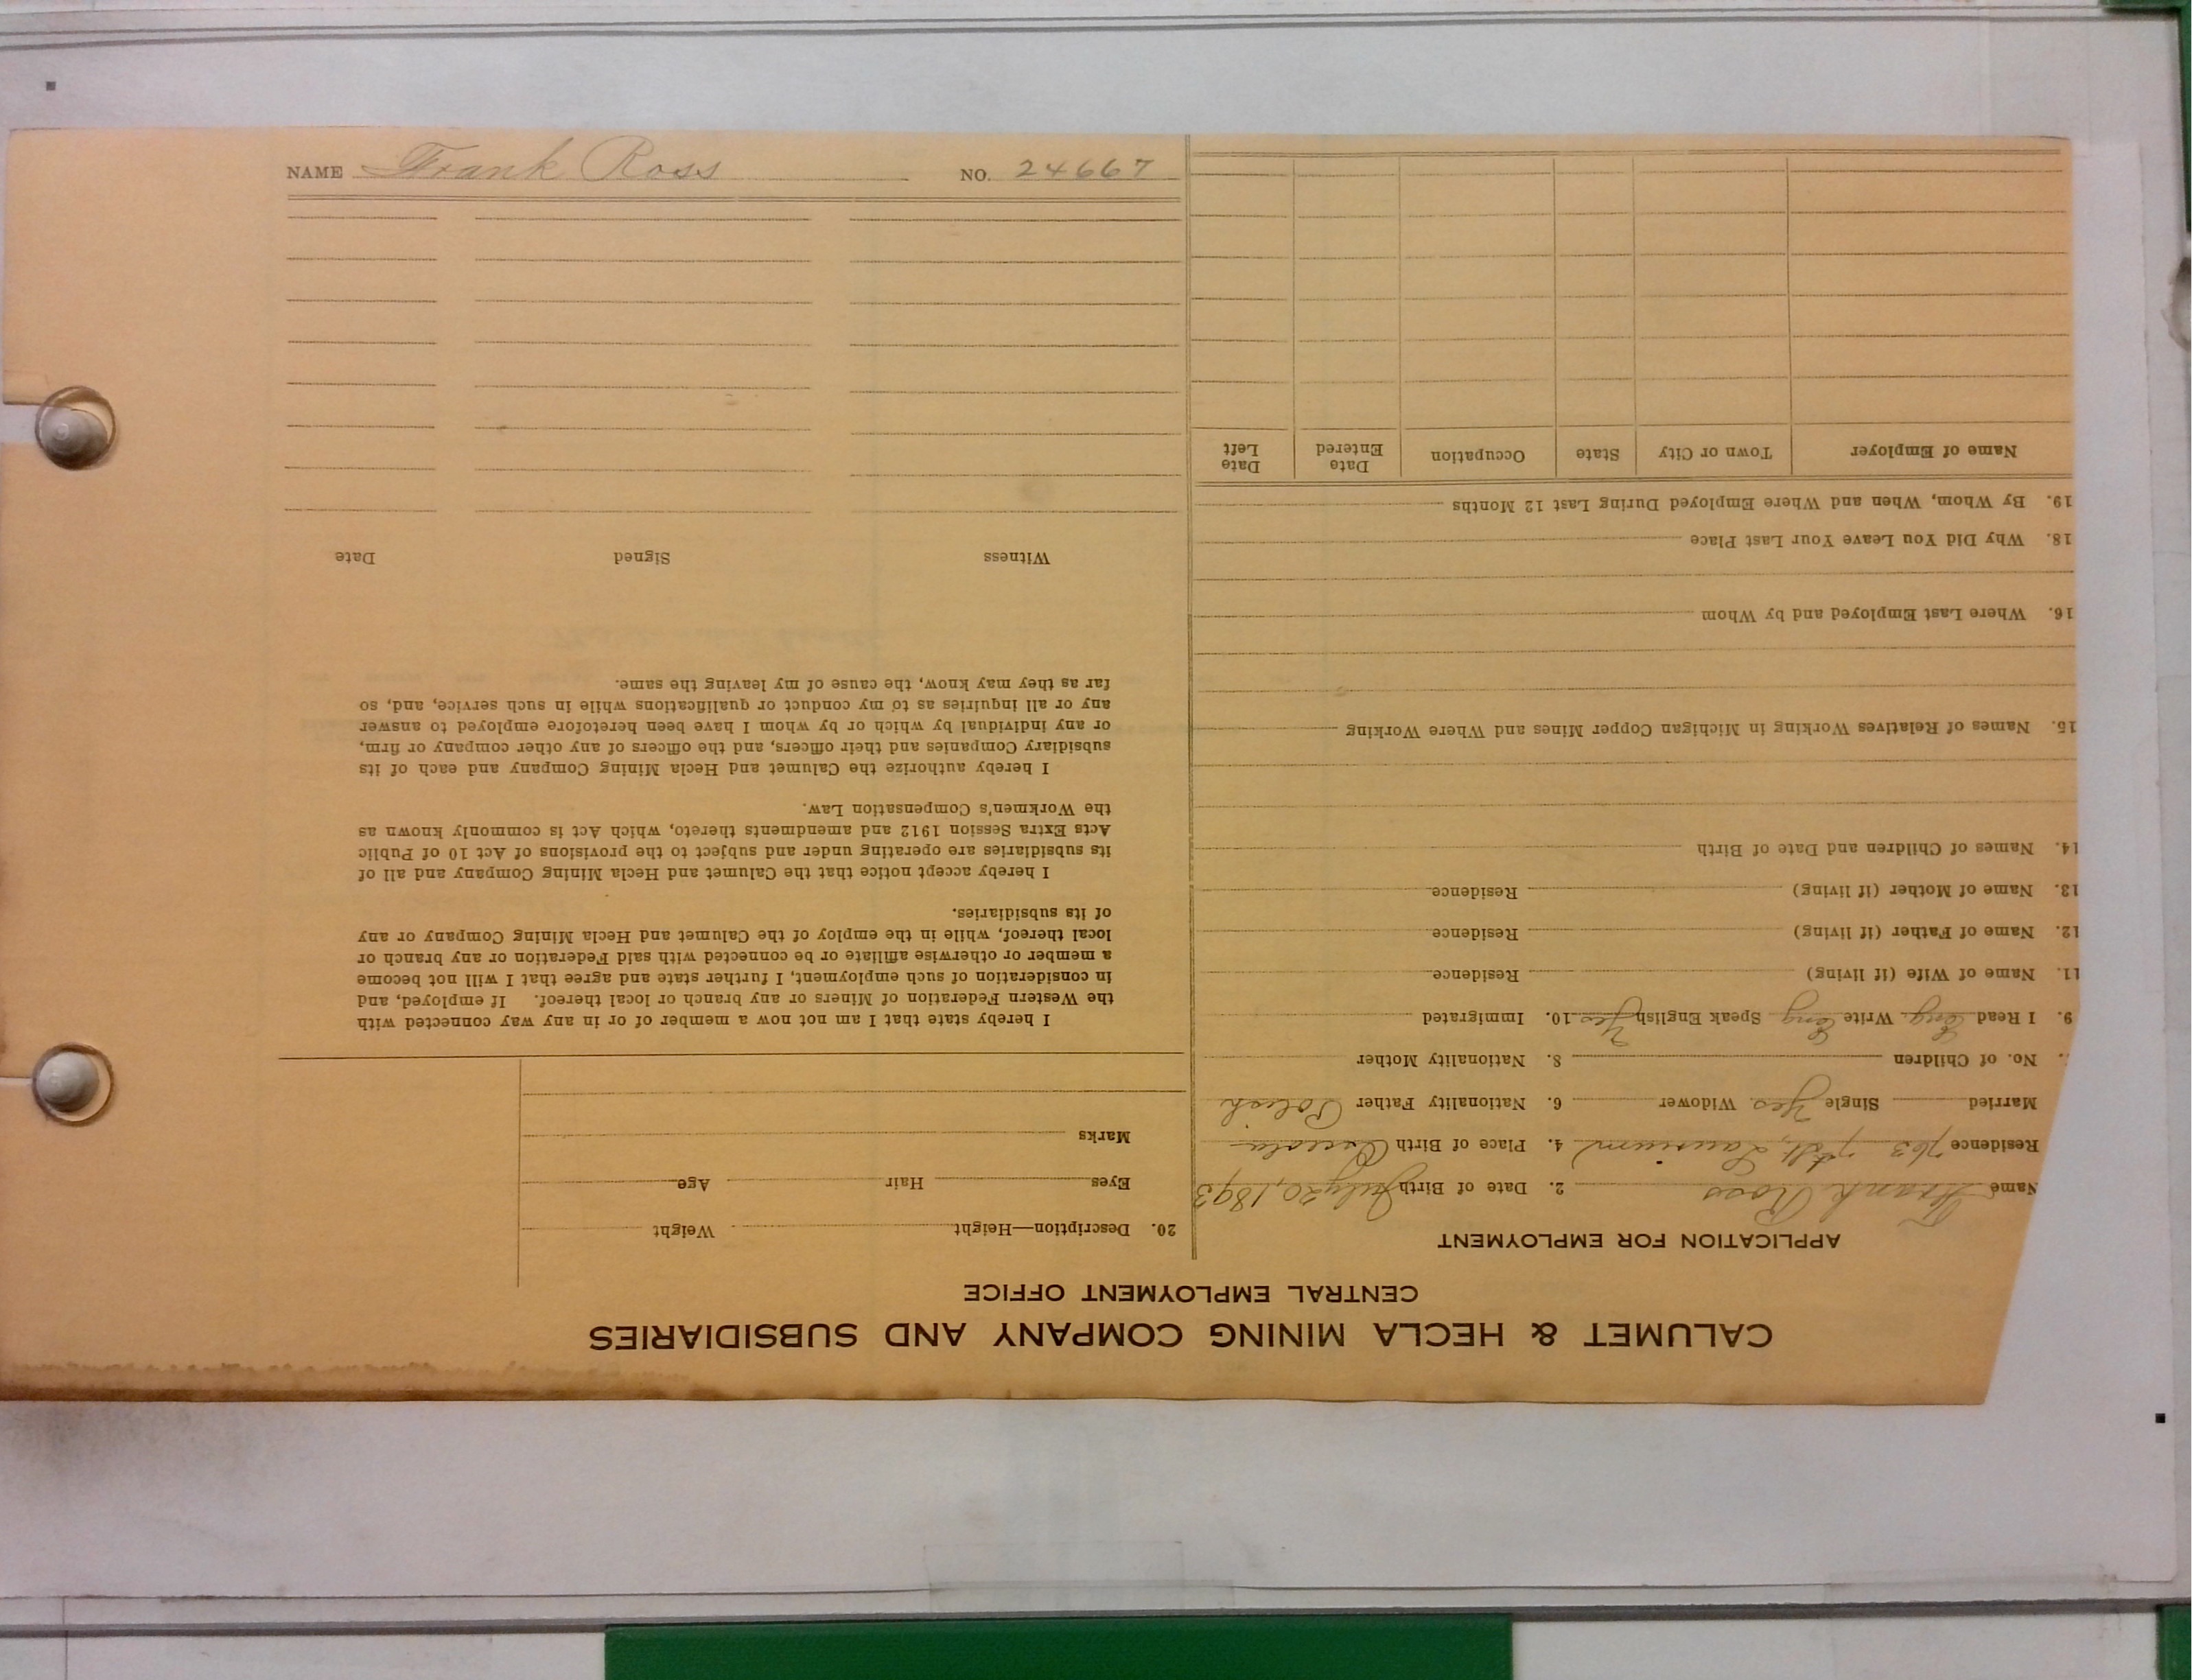 NAME Frank Ross NO. 24667
CALUMET & HECLA MINING COMPANY AND SUBSIDIARIES
CENTRAL EMPLOYMENT OFFICE
APPLICATION FOR EMPLOYMENT
Name Frank Ross 2. Date of Birth July 20, 1893
Residence 763 7th St, Laurium 4. Place of Birth Osceola
Married Single Yes Widower 6. Nationality Father Polish
No. of Children 8. Nationality Mother
9. I Read Eng Write Eng Speak English Yes 10. Immigrated
11. Name of Wife (if living) Residence
12. Name of Father (if living) Residence
13. Name of Mother (if living) Residence
14. Names of Children and Date of Birth
15. Names of Relatives Working in Michigan Copper Mines and Where Working
16. Where Last Employed and by Whom
18. Why Did You Leave Your Last Place
19. By Whom, When and Where Employed During Last 12 Months
Name of Employer Town or City State Occupation Date Entered Date Left
20. Description—Height Weight
Eyes Hair Age
Marks
I hereby state that I am not now a member of or in any way connected with
the Western Federation of Miners or any branch or local thereof. If employed, and
in consideration of such employment, I further state and agree that I will not become
a member or otherwise affiliate or be connected with said Federation or any branch or
local thereof, while in the employ of the Calumet and Hecla Mining Company or any
of its subsidiaries.
I hereby accept notice that the Calumet and Hecla Mining Company and all of
its subsidiaries are operating under and subject to the provisions of Act 10 of Public
Acts Extra Session 1912 and amendments thereto, which Act is commonly known as
the Workmen's Compensation Law.
I hereby authorize the Calumet and Hecla Mining Company and each of its
subsidiary Companies and their officers, and the officers of any other company or firm,
or any individual by which or by whom I have been heretofore employed to answer
any or all inquiries as to my conduct or qualifications while in such service, and, so
far as they may know, the cause of my leaving the same.
Witness Signed Date